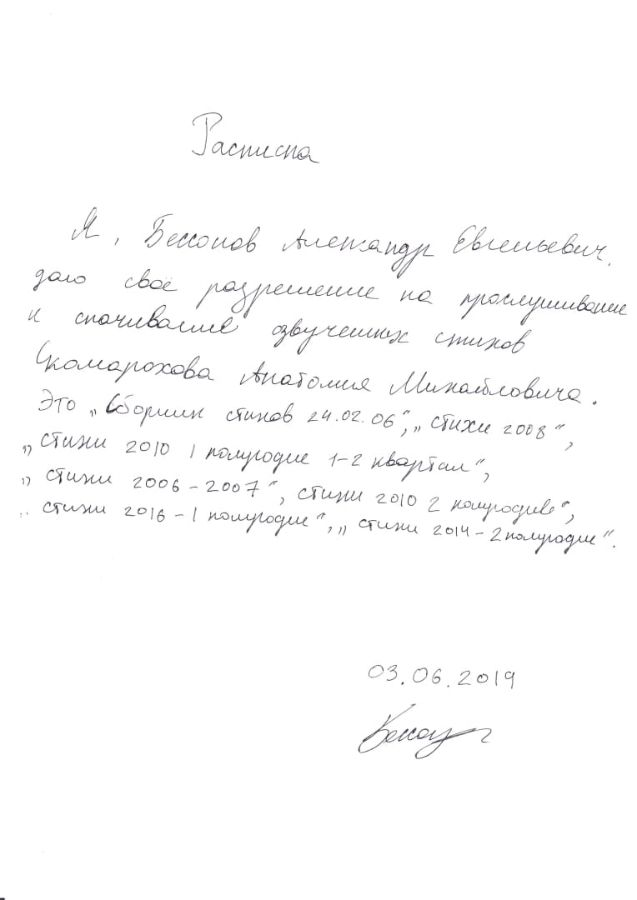 Расписка
Я, Бессонов Александр Евгеньевич,
даю своё разрешение на прослушивание
и скачивание озвученных стихов
Скоморохова Анатолия Михайловича.
Это „Сборник стихов 24.02.06", „стихи 2008",
„стихи 2010 1 полугодие 1-2 квартал",
„стихи 2006-2007", стихи 2010 2 полугодие",
„стихи 2016-1 полугодие", „стихи 2014-2 полугодие".
03.06.2019